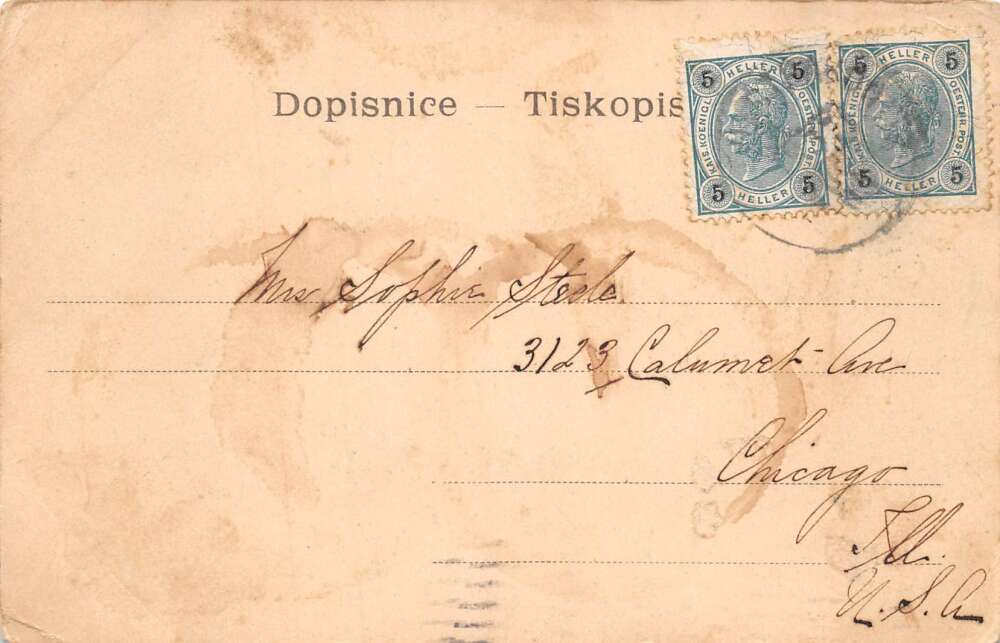 Dopisnice — Tiskopis
5 HELLER 5
KAIS. KOENIGL. OESTERR. POST.
5 HELLER 5
5 HELLER 5
KAIS. KOENIGL. OESTERR. POST.
5 HELLER 5
Mrs Sophie Steele
3123 Calumet Ave
Chicago
Ill.
U. S. A